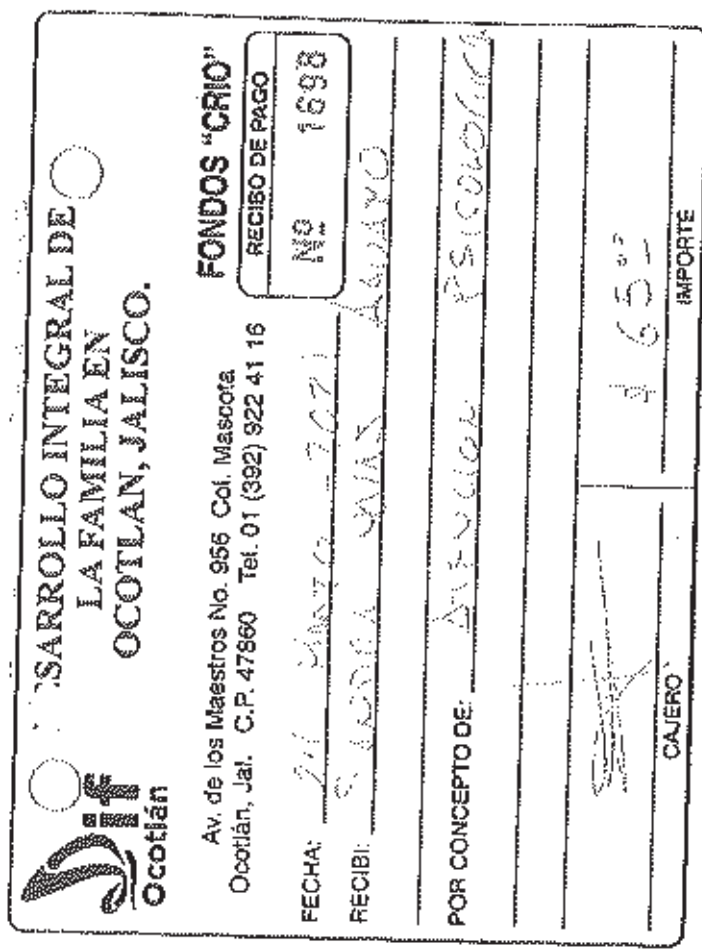 Dif
Ocotlán
SARROLLO INTEGRAL DE
LA FAMILIA EN
OCOTLAN, JALISCO.
Av. de los Maestros No. 956 Col. Mascota
Ocotlán, Jal. C.P. 47860 Tel. 01 (392) 922 41 16
FONDOS "CRIO"
RECIBO DE PAGO
Nº 1698
FECHA:
RECIBI:
POR CONCEPTO DE: PSICOLOGICA
$ 65.00
CAJERO
IMPORTE